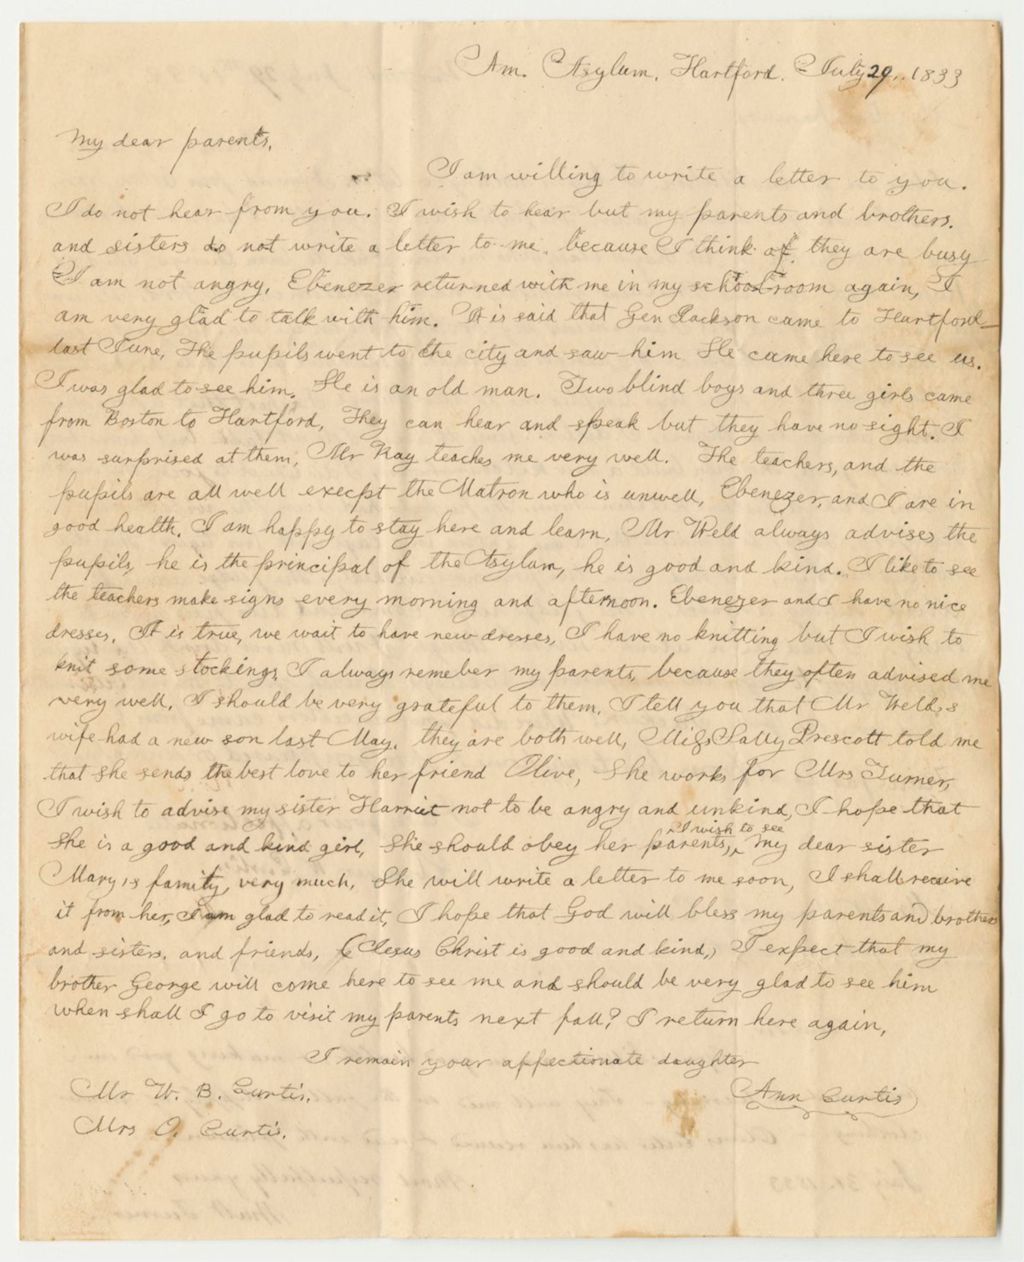 Am. Asylum, Hartford. July 29, 1833
My dear parents,
I am willing to write a letter to you.
I do not hear from you. I wish to hear but my parents and brothers,
and sisters do not write a letter to me, because I think of they are busy
I am not angry, Ebenezer returned with me in my school room again, I
am very glad to talk with him. It is said that Gen Jackson came to Hartford
last June, The pupils went to the city and saw him He came here to see us.
I was glad to see him. He is an old man. Two blind boys and three girls came
from Boston to Hartford, They can hear and speak but they have no sight. I
was surprised at them, Mr Kay teaches me very well. The teachers, and the
pupils are all well execpt the Matron who is unwell, Ebenezer, and I are in
good health. I am happy to stay here and learn, Mr Weld always advises the
pupils, he is the principal of the Asylam, he is good and kind. I like to see
the teachers make signs every morning and afternoon. Ebenezer and I have no nice
dresses. It is true, we wait to have new dresses, I have no knitting but I wish to
knit some stockings I always remeber my parents, because they often advised me
very well. I should be very grateful to them. I tell you that Mr Weld,s
wife had a new son last May. they are both well, Miss Sally Prescott told me
that she sends the best love to her friend Olive, She works for Mrs Turner,
I wish to advise my sister Harriet not to be angry and unkind, I hope that
She is a good and kind girl, She should obey her parents,
I wish to see
my dear sister
Mary,s family, very much. She will write a letter to me soon, I shall receive
it from her, I am glad to read it, I hope that God will bless my parents and brothers
and sisters, and friends, (Jesus Christ is good and kind,) I expect that my
brother George will come here to see me and should be very glad to see him
when shall I go to visit my parents next fall? I return here again,
I remain your affectionate daughter
Mr W. B. Curtis.
Ann Curtis
Mrs O. Curtis.